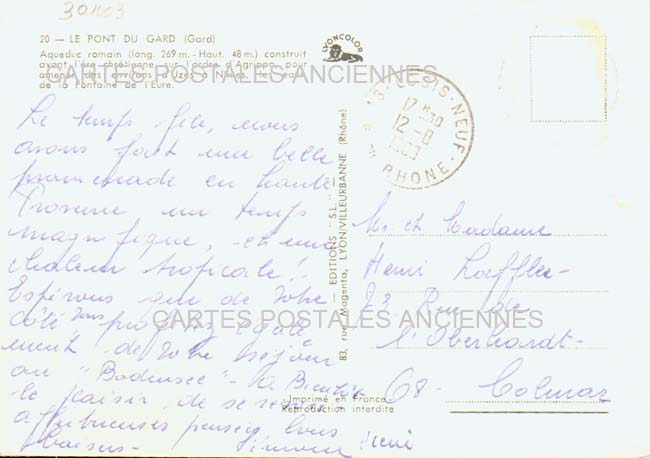 301003
20 — LE PONT DU GARD (Gard)
Aqueduc romain (long. 269 m. - Haut. 48 m.) construit
avant l'ère chrétienne sur l'ordre d'Agrippa, pour
amener des environs d'Uzès à Nîmes, les eaux
de la Fontaine de l'Eure.
LYONCOLOR
CARTES POSTALES ANCIENNES
ST-LOUIS-NEUF-
17 H30
12-8
RHONE
Le temps file, nous
avons fait une belle
promenade en haute
Provence un temps
magnifique, et une
chaleur tropicale!
Espérons que de Votre
côté Vous profitez égale
ment de Votre séjour
au "Bodensee" - à Bientôt
le plaisir de se revoir
affectueuses pensées bons
baisers - Simone René
— EDITIONS "S.L." —
83, rue Magenta, LYON-VILLEURBANNE (Rhône)
Mr et Madame
Henri Loeffler
22 Rue de
l'Oberhardt-
68 - Colmar
CARTES POSTALES ANCIENNES
Imprimé en France
Reproduction interdite